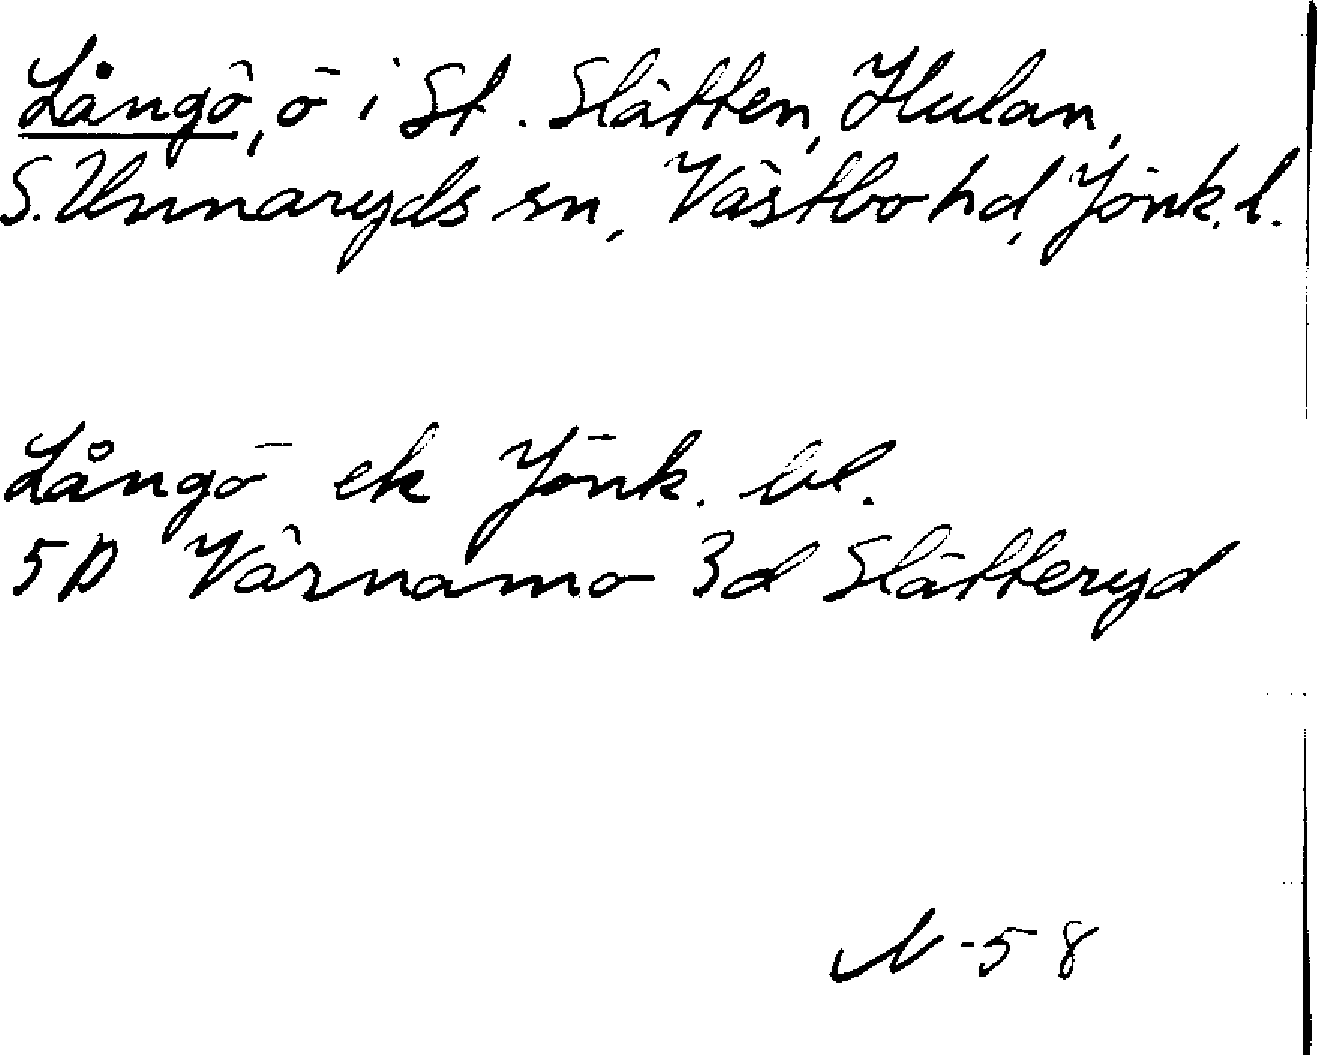 Långö, ö i St. Slätten, Hulan,
S. Unnaryds sn, Västbo hd, Jönk. l.
Långö ek Jönk. bl.
5D Värnamo 3d Slätteryd
N-58